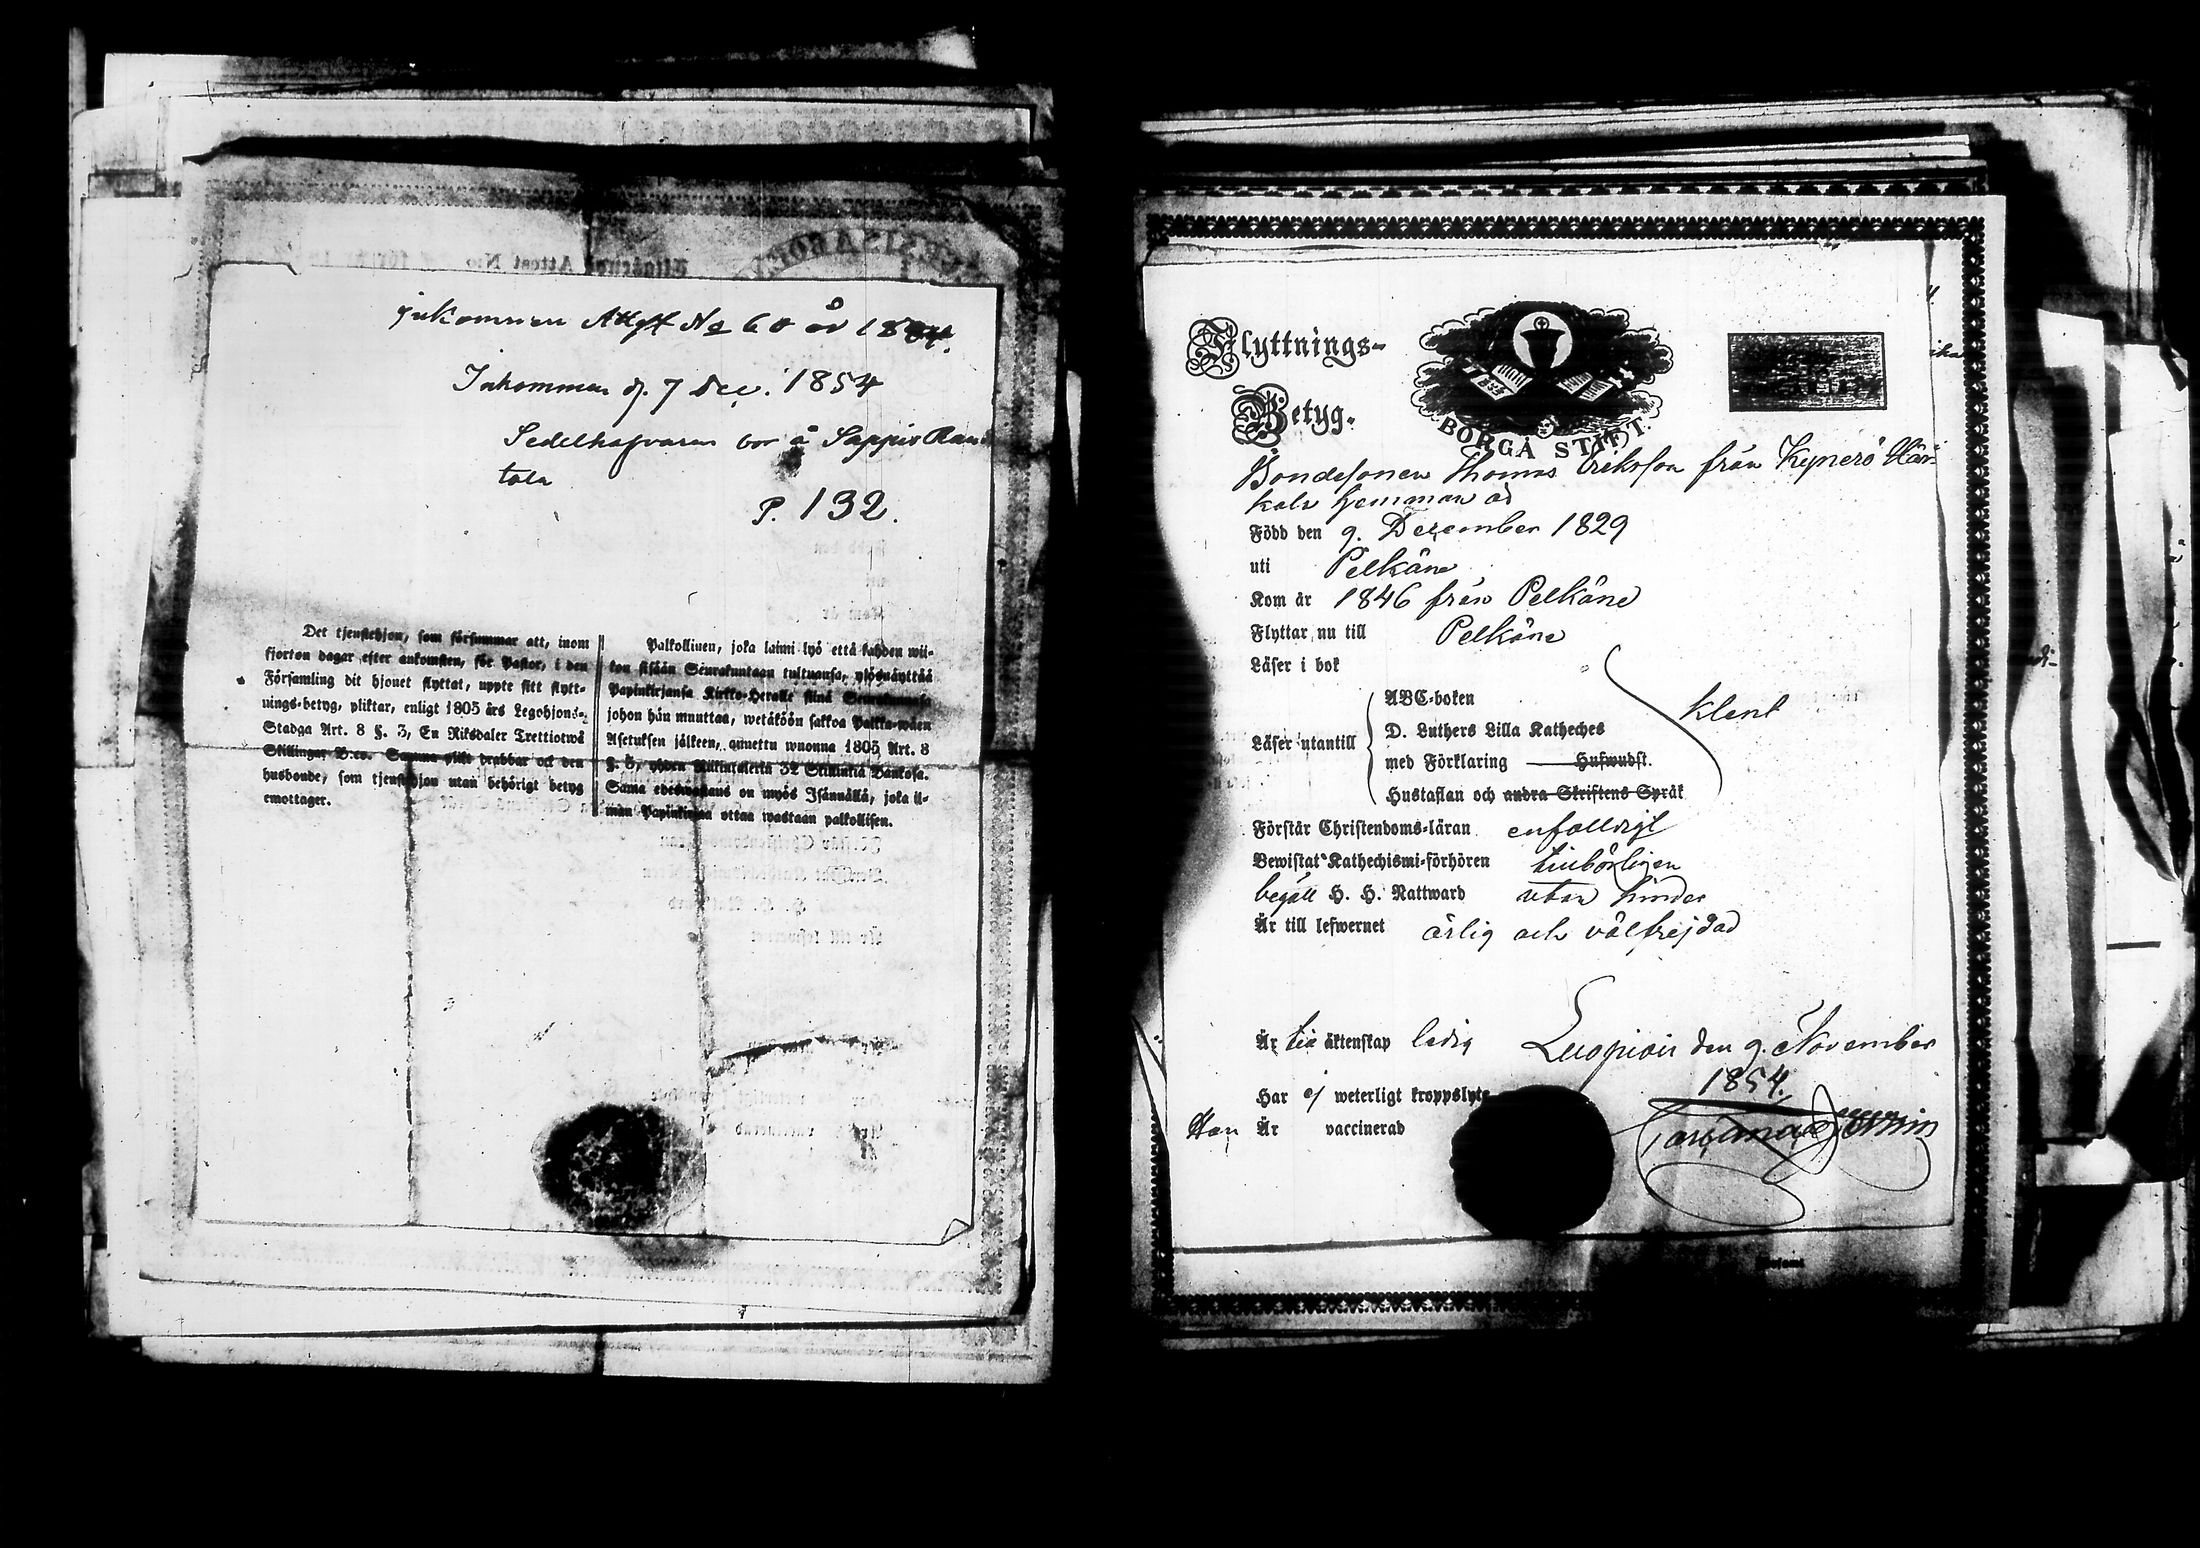 Inkommen Attest No 60 år 1854.
Inkommen d. 7 Dec. 1854
Sedelhafvaren bor å Sappis Rau
tala
P. 132.
Det tjenstehjon, som försummar att, inom
fjorton dagar efter ankomsten, för Pastor, i den
Församling dit hjonet flyttat, uppte sitt flytt-
nings-betyg, pliktar, enligt 1805 års Legohjons-
Stadga Art. 8 §. 3, En Riksdaler Trettiotwå
Skillingar B:co. Samma plikt drabbar ock den
husbonde, som tjenstehjon utan behörigt betyg
emottager.
Palkollinen, joka laimi lyö että kahden wii-
kon sisään Seurakuntaan tultuansa, ylösnäyttää
Papinkirjansa Kirkko-Herralle siinä Seurakunnasa
johon hän muuttaa, wetäköön sakkoa Palkka-wäen
Asetuksen jälkeen, annettu wuonna 1805 Art. 8
§. 3, yhden Riikintalerin 32 Skillinkiä Bankosa.
Sama edeswastaus on myös Isännällä, joka il-
man Papinkirjaa ottaa wastaan palkollisen.
Flyttnings-
Betyg.
BORGÅ STIFT.
Bondesonen Thomas Eriksson från Kynerö
kala hemman äd
Född den 9. December 1829
uti Pelkäne
Kom år 1846 från Pelkäne
Flyttar nu till Pelkäne
Läser i bok
ABC-boken
Läser utantill D. Luthers Lilla Katheches
med Förklaring Huswudst.
Hustaflan och andra Skriftens Språk
Klent
Förstår Christendoms-läran enfalldigt
Bewistat Kathechismi-förhören tillbörligen
begått H. H. Nattward utan hinder
Är till lefwernet ärlig och välfrejdad
Är till äktenskap ledig
Luopiois den 9. November
1854.
Har ej weterligt kroppslyte
Han Är vaccinerad